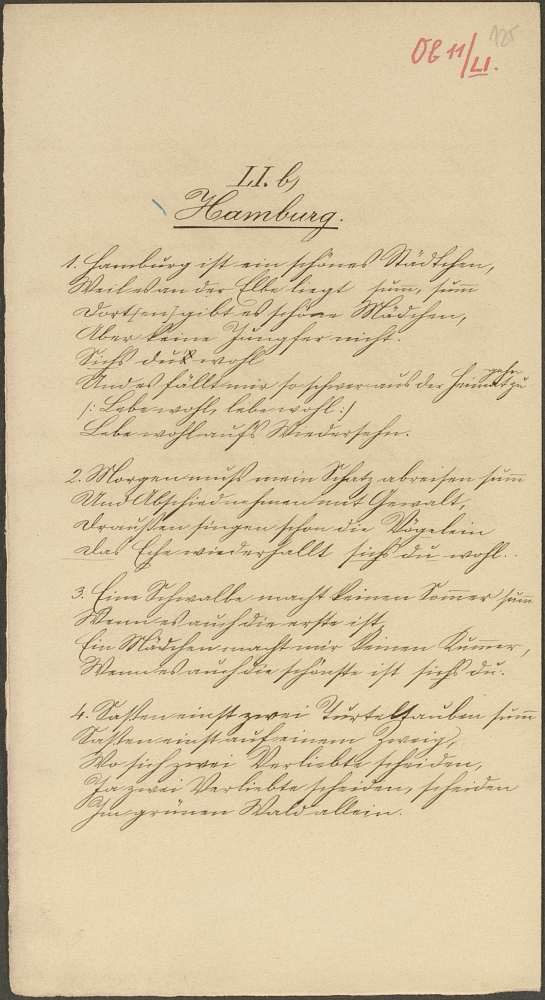 Ob 11/LI.
125
LI. b,
Hamburg.
1. Hamburg ist ein schönes Städtchen,
Weil es an der Elbe liegt sum, sum̄
Dortsen gibt es schöne Mädchen,
Aber keine Jungfer nicht.
Siehs du wohl
Und es fällt mir so schwer aus der Heimat zu
gehn
/: Lebe wohl, lebe wohl :/
Lebe wohl aufs Wiedersehn.
2. Morgen muß mein Schatz abreisen sum̄
Und Abschied nehmen mit Gewalt,
Draußen singen schon die Vögelein
Das Echo wiederhallt siehs du wohl.
3. Eine Schwalbe macht keinen Som̄er sum̄
Wenn es auch die erste ist,
Ein Mädchen macht mir keinen Kum̄er,
Wenn es auch die schönste ist siehs du.
4. Saßen einst zwei Turteltauben sum̄
Saßen einst auf einem Zweig,
Wo sich zwei Verliebte scheiden,
Ja zwei Verliebte scheiden, scheiden
Im grünen Wald allein.